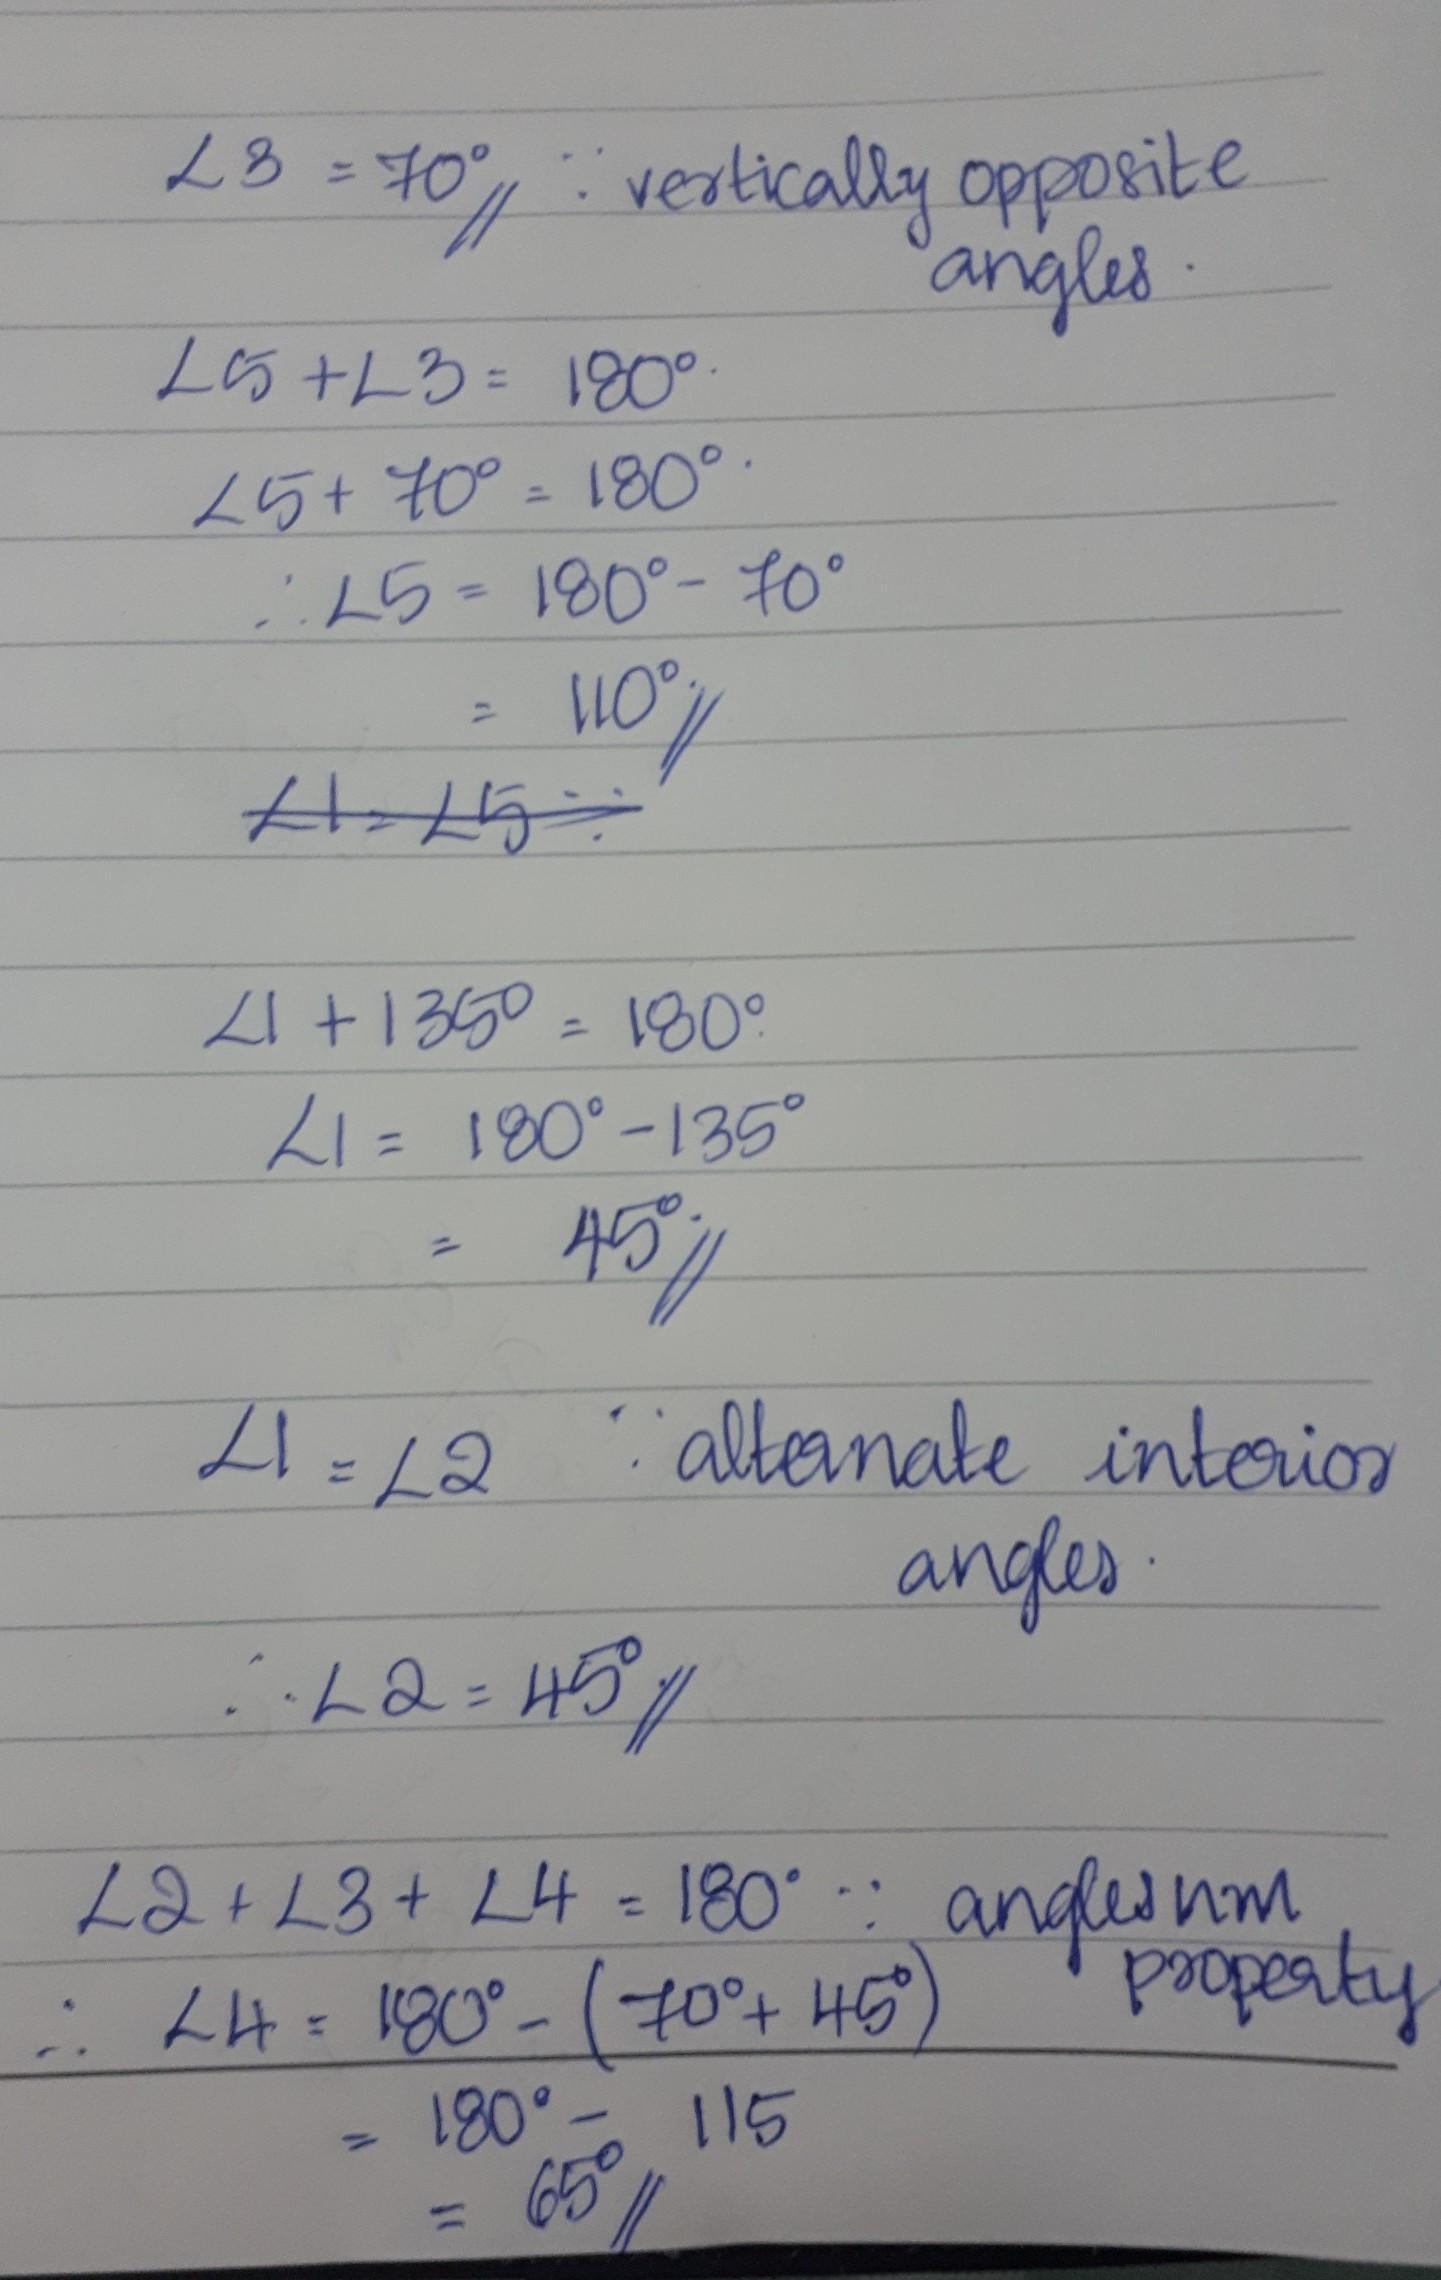 ∠3 = 70°// ∵ vertically opposite
angles.
∠5 + ∠3 = 180°.
∠5 + 70° = 180°.
∴ ∠5 = 180° - 70°
= 110°.//
∠1 = ∠5 ∵
∠1 + 135° = 180°.
∠1 = 180° - 135°
= 45°.//
∠1 = ∠2 ∵ alternate interior
angles.
∴ ∠2 = 45°.//
∠2 + ∠3 + ∠4 = 180° ∵ anglesum
property
∴ ∠4 = 180° - (70° + 45°)
= 180° - 115
= 65°//